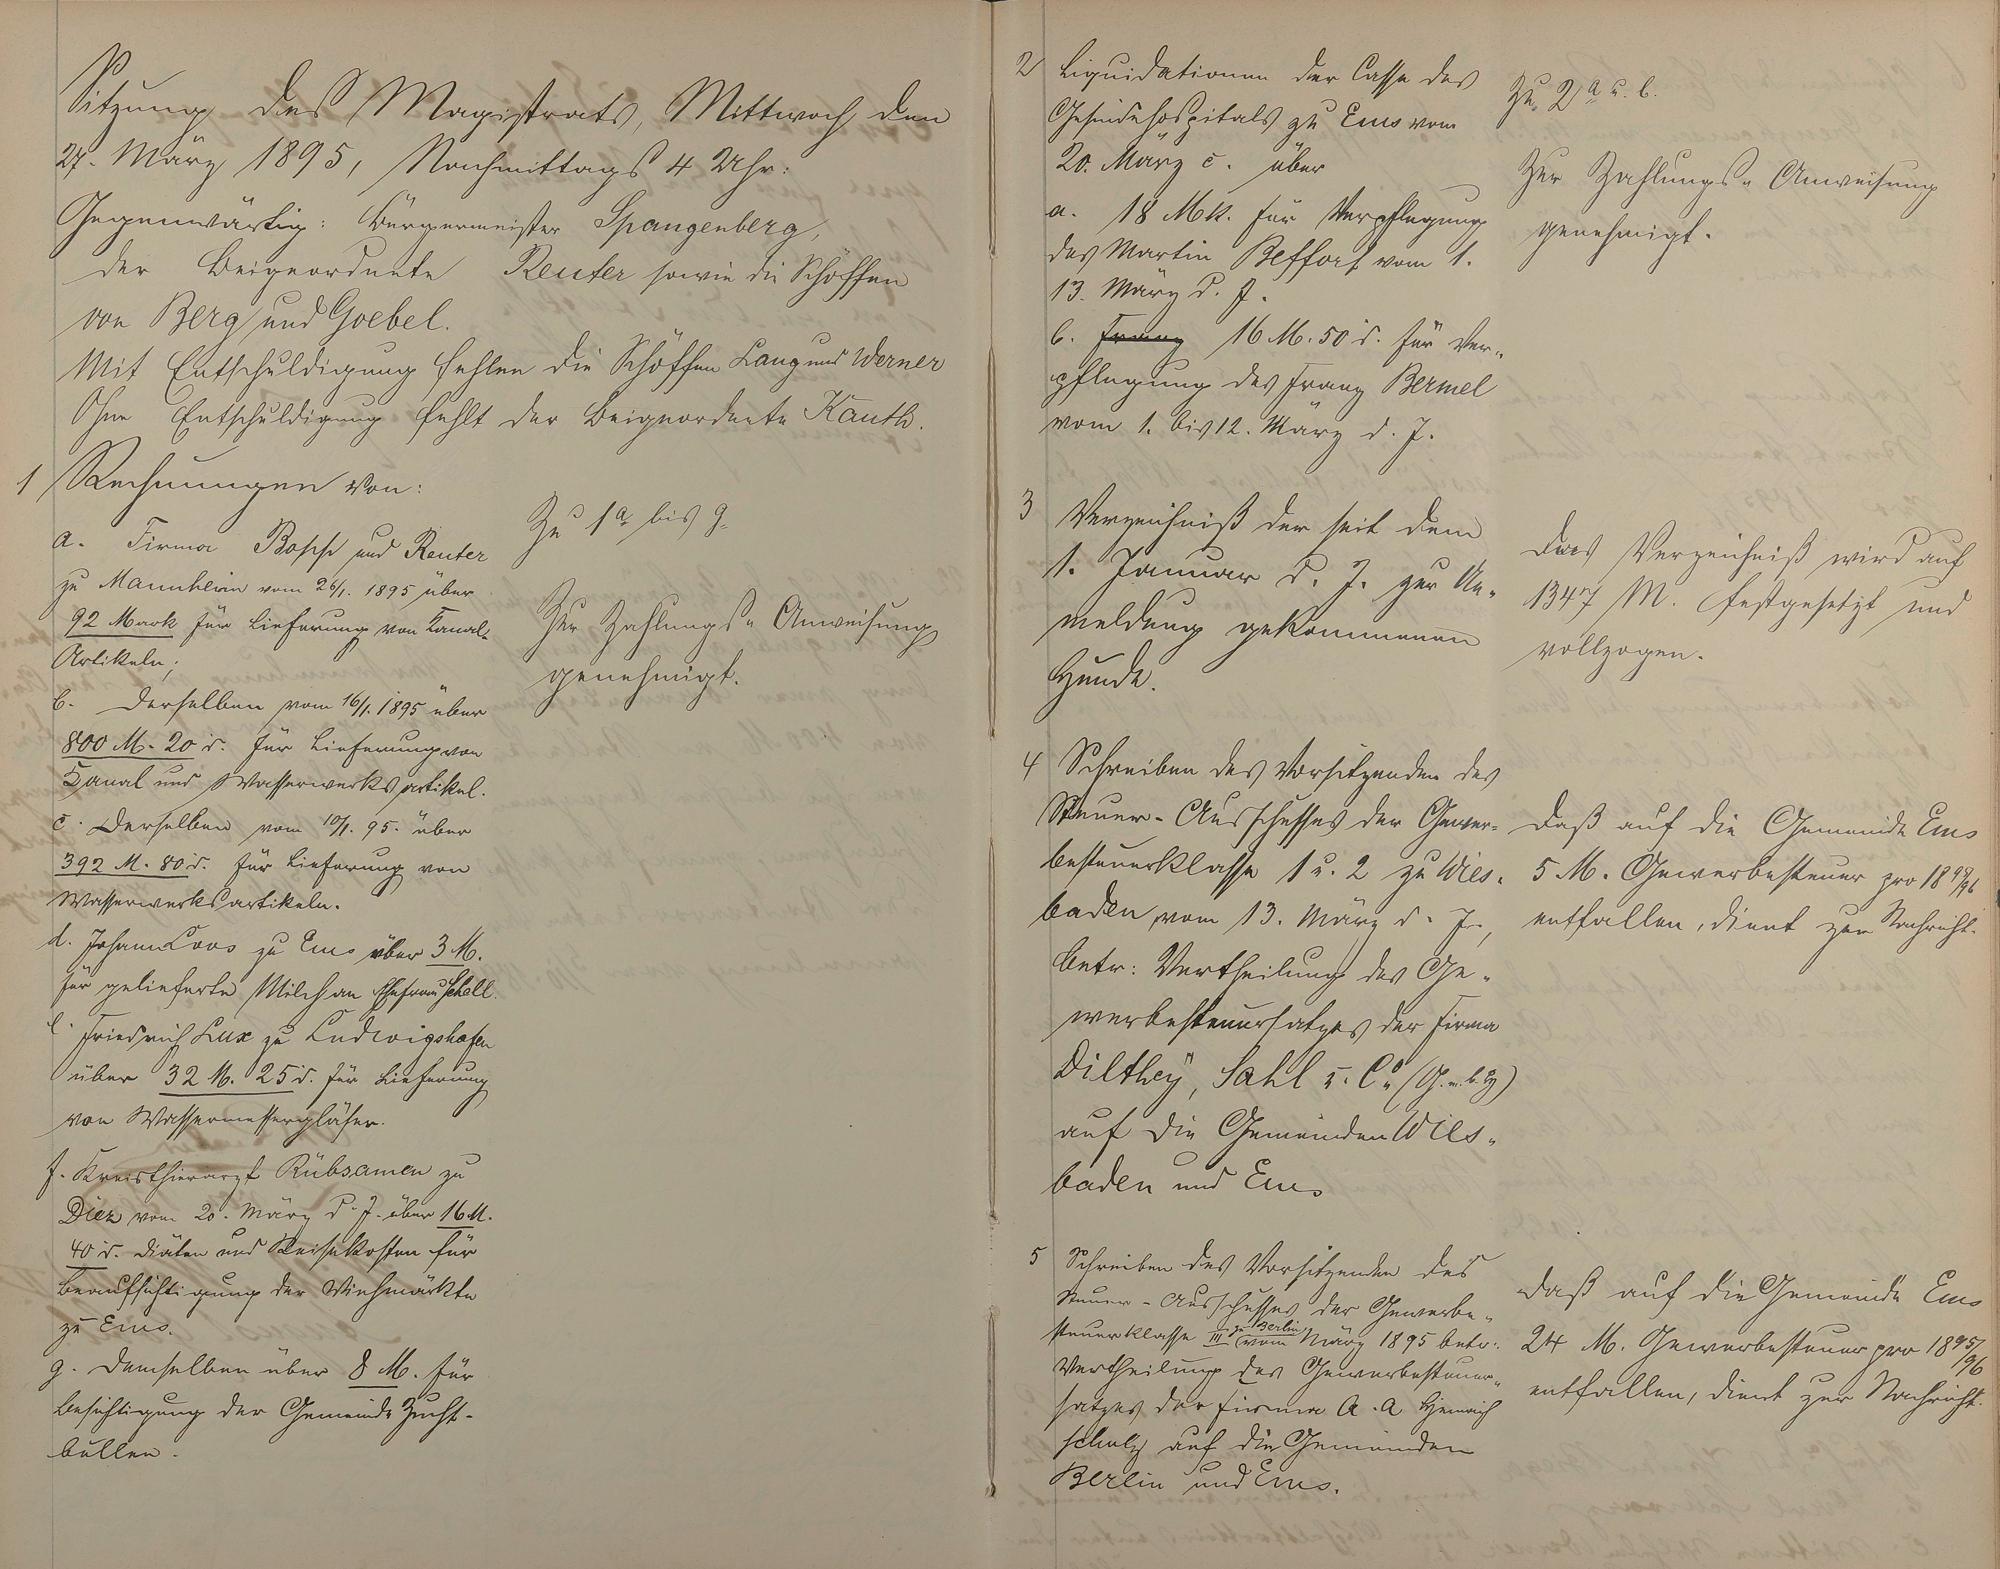 Sitzung des Magistrats, Mittwoch den
27. März 1895, Nachmittags 4 Uhr:
Gegenwärtig: Bürgermeister Spangenberg,
der Beigeordnete Reuter sowie die Schöffen
von Berg und Goebel.
Mit Entschuldigung fehlen die Schöffen Lang und Werner
Ohne Entschuldigung fehlt der Beigeordnete Kauth.
1 Rechnungen von:
a. Firma Bopp und Reuter
zu Mannheim vom 26/1. 1895 über
92 Mark für Lieferung von Kanal-
Artikeln;
b. Derselben vom 16/1. 1895 über
800 M. 20 d. für Lieferung von
Kanal und Wasserwerksartikel.
c. Derselben vom 10/1. 95. über
392 M. 80 d. für Lieferung von
Wasserwerksartikeln.
d. Johann Loos zu Ems über 3 M.
für gelieferte Milch an Ehefrau Schell.
e. Friedrich Lux zu Ludwigshafen
über 32 M. 25 d. für Lieferung
von Wassermessergläser.
f. Kreisthierarzt Rübsamen zu
Diez vom 20. März d. J. über 16 M.
40 d. Diäten und Reisekosten für
Beaufsichtigung der Viehmärkte
zu Ems.
g. Demselben über 8 M. für
Besichtigung der Gemeinde Zucht-
bullen.
Zu 1 a bis g.
Zur Zahlungs- Anweisung
genehmigt.
2 Liquidationen der Casse des
Gesindehospitals zu Ems vom
20. März c. über
a. 18 Mk. für Verpflegung
des Martin Beffort vom 1.
13. März d. J.
b. Franz 16 M. 50 d. für Ver-
pflegung des Franz Bermel
vom 1. bis 12. März d. J.
Zu 2 a u. b.
Zur Zahlungs- Anweisung
genehmigt.
3 Verzeichniß der seit dem
1. Januar d. J. zur An-
meldung gekommenen
Hunde.
Das Verzeichniß wird auf
1347 M. festgesetzt und
vollzogen.
4 Schreiben des Vorsitzenden des
Steuer-Ausschusses der Gewer-
besteuerklasse 1 u. 2 zu Wies-
baden vom 13. März d. J.,
betr: Vertheilung des Ge-
werbesteuersatzes der Firma
Dilthey, Sahl u. Co (G.m.b.H)
auf die Gemeinden Wies-
baden und Ems
Daß auf die Gemeinde Ems
5 M. Gewerbesteuer pro 1895/96
entfallen, dient zur Nachricht.
5 Schreiben des Vorsitzenden des
Steuer-Ausschusses der Gewerbe-
steuerklasse III zu Berlin vom März 1895 betr:
Vertheilung des Gewerbesteuer-
satzes der Firma A. A. Heinrich
Schulz auf die Gemeinden
Berlin und Ems.
Daß auf die Gemeinde Ems
24 M. Gewerbesteuer pro 1895/96
entfallen, dient zur Nachricht.